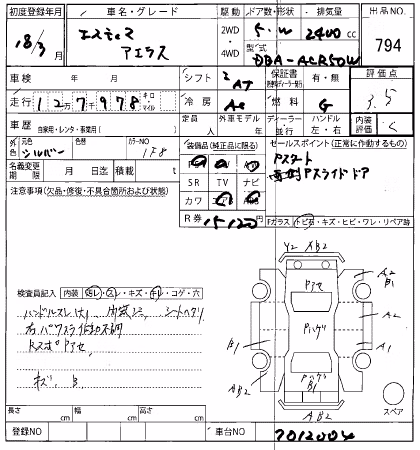 初度登録年月 車名・グレード 駆動 ドア数・形状 排気量 出品NO.
18/3月 エスティマ アエラス 2WD 4WD 5.W 2400cc 794
型式 DBA-ACR50W
車検 年 月 シフト AT 保証書 有・無 評価点
走行 127978 キロ マイル 冷房 AC 燃料 G 3.5
車歴 自家用・レンタ・事業用( ) 定員 人 外車モデル 年 ディーラー 並行 ハンドル 左・右 内装評価 C
外色 元色 シルバー 色替 カラーNO 1F8 装備品(純正品に限る) セールスポイント(正常に作動するもの)
名義変更期限 月 日迄 積載 t SR TV ナビ
Pスタート
両側Pスライドドア
注意事項(欠品・修復・不具合箇所および状態) カワ
R券 15120 Fガラス トビ石・キズ・ヒビ・ワレ・リペア跡
検査員記入 内装 汚レ・スレ・キズ・キレ・コゲ・穴
ハンドルスレ(大) 内装 シートヘタリ
右パワスライド作動不調
キズ、B
Y2 AB2
A2
B1
A2
A1
B1
AB2
AB2
Pアゼ
Pハゲ
Pハゲ
B1
スペア
長さ cm 幅 cm 高さ cm
登録NO 車台NO 7012004